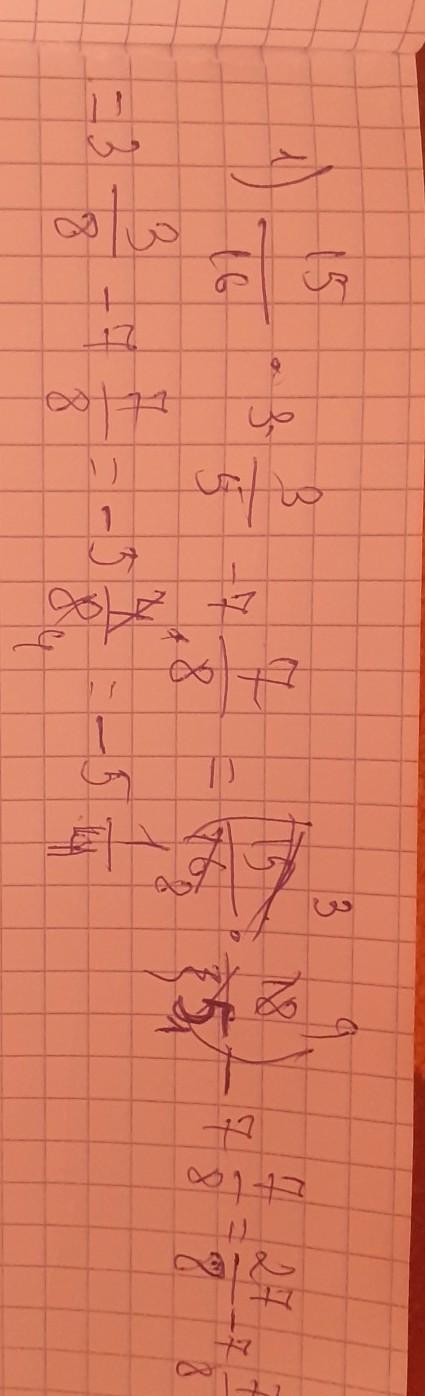 1) 15/16 · 3 3/5 - 7 7/8 = 15/16 · 18/5 - 7 7/8 = 27/8 - 7 7/8
= 3 3/8 - 7 7/8 = - 5 2/8 = - 5 1/4